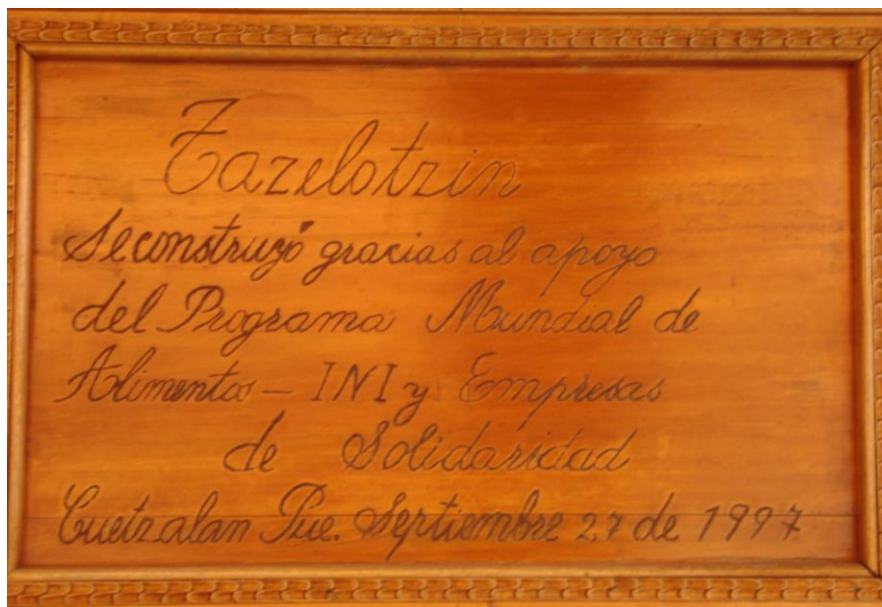 Tazelotzin
Se construyó gracias al apoyo
del Programa Mundial de
Alimentos - INI y Empresas
de Solidaridad
Cuetzalan Pue. Septiembre 27 de 1997